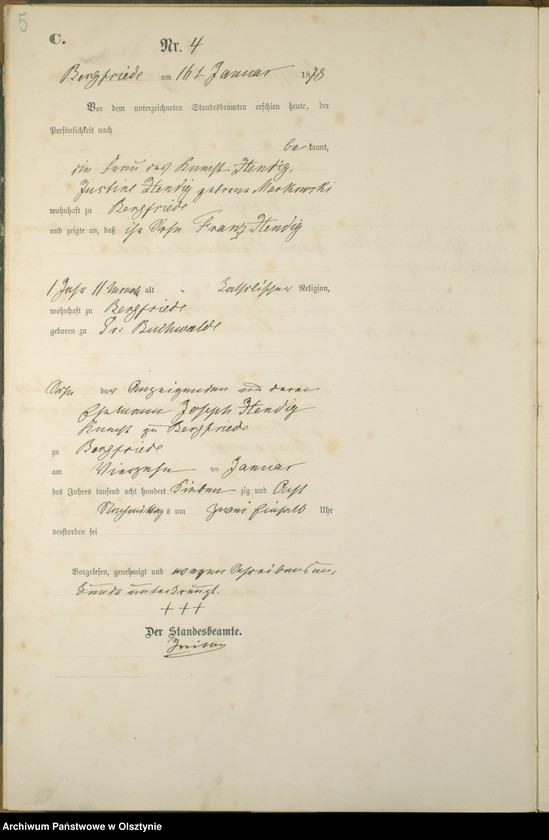 5
C.
Nr. 4
Bergfriede am 16t Januar 1878
Vor dem unterzeichneten Standesbeamten erschien heute, der
Persönlichkeit nach
be kannt,
die Frau des Knecht Hendig,
Justine Hendig geborne Markowski
wohnhaft zu Bergfriede
und zeigte an, daß ihr Sohn Franz Hendig
1 Jahr 11 Monate alt katholischer Religion,
wohnhaft zu Bergfriede
geboren zu Pr: Buchwalde
Sohn der Anzeigenden und deren
Ehemann Joseph Hendig
Knecht zu Bergfriede
zu Bergfriede
am Vierzehn ten Januar
des Jahrs tausend acht hundert Sieben zig und Acht
Nachmittags um zwei einhalb Uhr
verstorben sei
Vorgelesen, genehmigt und wegen Schreibensun,
kunde unterkreuzt.
+++
Der Standesbeamte.
Archiwum Państwowe w Olsztynie